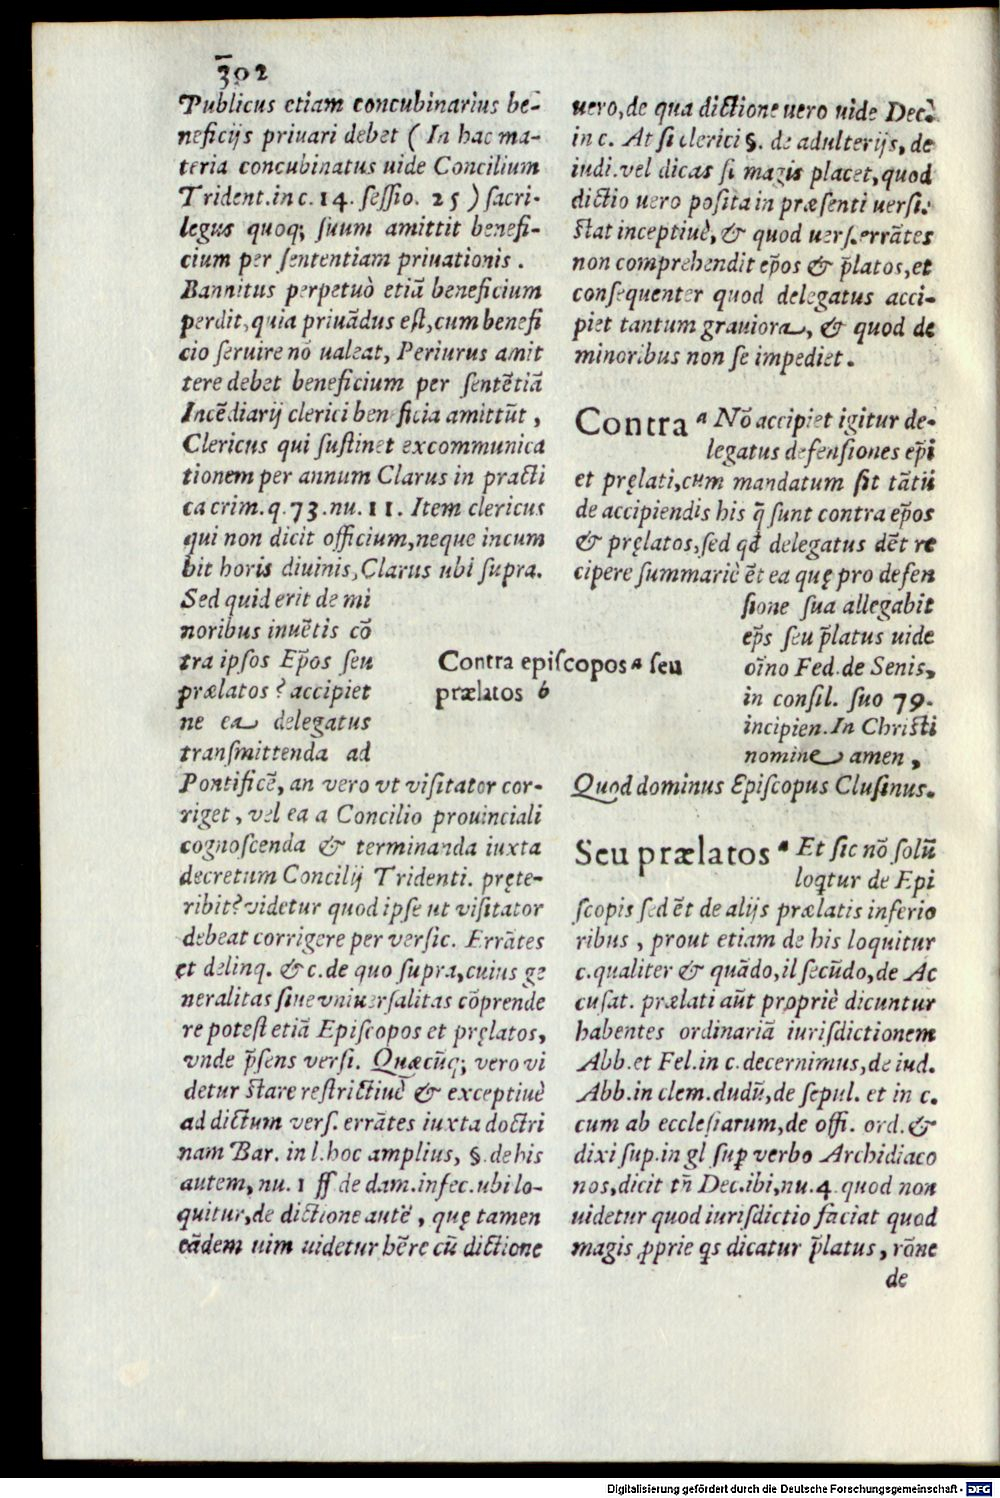 302
Publicus etiam concubinarius be-
neficijs priuari debet ( In hac ma-
teria concubinatus uide Concilium
Trident. in c. 14. sessio. 25 ) sacri-
legus quoq; suum amittit benefi-
cium per sententiam priuationis .
Bannitus perpetuò etiā beneficium
perdit, quia priuādus est, cum benefi
cio seruire nō ualeat, Periurus amit
tere debet beneficium per sentētiā
Incēdiarij clerici ben ficia amittūt ,
Clericus qui sustinet excommunica
tionem per annum Clarus in practi
ca crim. q. 73. nu. 11. Item clericus
qui non dicit officium, neque incum
bit horis diuinis, Clarus ubi supra.
Sed quid erit de mi
noribus inuētis cō
tra ipsos Ep̄os seu
prælatos ? accipiet
ne ea delegatus
transmittenda ad
Pontificē, an vero vt visitator cor-
riget , vel ea a Concilio prouinciali
cognoscenda & terminanda iuxta
decretum Concilij Tridenti. pręte-
ribit? videtur quod ipse ut visitator
debeat corrigere per versic. Errātes
et delinq. & c. de quo supra, cuius ge
neralitas siue vniuersalitas cōprende
re potest etiā Episcopos et pręlatos,
vnde p̄sens versi. Quæcūq; vero vi
detur stare restrictiuè & exceptiuè
ad dictum vers. errātes iuxta doctri
nam Bar. in l. hoc amplius, §. de his
autem, nu. 1 ff de dam. infec. ubi lo-
quitur, de dictione autē , quę tamen
eādem uim uidetur hēre cū dictione
Contra episcopos a seu
prælatos b
uero, de qua dictione uero uide Dec.
in c. At si clerici §. de adulterijs, de
iudi. vel dicas si magis placet, quod
dictio uero posita in præsenti uersi.
stat inceptiuè, & quod uers. errātes
non comprehendit ep̄os & p̄latos, et
consequenter quod delegatus acci-
piet tantum grauiora, & quod de
minoribus non se impediet .
Contra a Nō accipiet igitur de-
legatus defensiones ep̄i
et pręlati, cum mandatum sit tātū
de accipiendis his q̄ sunt contra ep̄os
& pręlatos, sed qd delegatus dēt re
cipere summariè ēt ea quę pro defen
sione sua allegabit
ep̄s seu p̄latus uide
oīno Fed. de Senis,
in consil. suo 79.
incipien. In Christi
nomine amen ,
Quod dominus Episcopus Clusinus.
Seu prælatos a Et sic nō solū
loq̄tur de Epi
scopis sed ēt de alijs prælatis inferio
ribus , prout etiam de his loquitur
c. qualiter & quādo, il secūdo, de Ac
cusat. prælati aūt propriè dicuntur
habentes ordinariā iurisdictionem
Abb. et Fel. in c. decernimus, de iud.
Abb. in clem. dudū, de sepul. et in c.
cum ab ecclesiarum, de offi. ord. &
dixi sup. in gl sup̱ verbo Archidiaco
nos, dicit tn̄ Dec. ibi, nu. 4. quod non
uidetur quod iurisdictio faciat quod
magis ꝓprie qs dicatur p̄latus , rōne
de
Digitalisierung gefördert durch die Deutsche Forschungsgemeinschaft - DFG